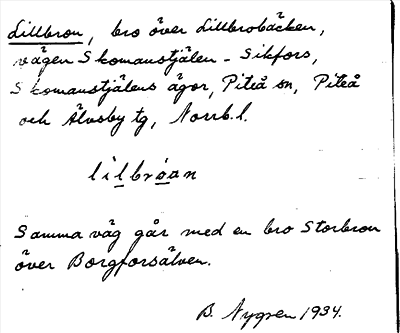 Lillbron, bro över Lillbrobäcken,
vägen Skomanstjälen - Sikfors,
Skomanstjälens ägor, Piteå sn, Piteå
och Älvsby tg, Norrb. l.
lilbróan
Samma väg går med en bro Storbron
över Borgforsälven.
B. Nygren 1934.